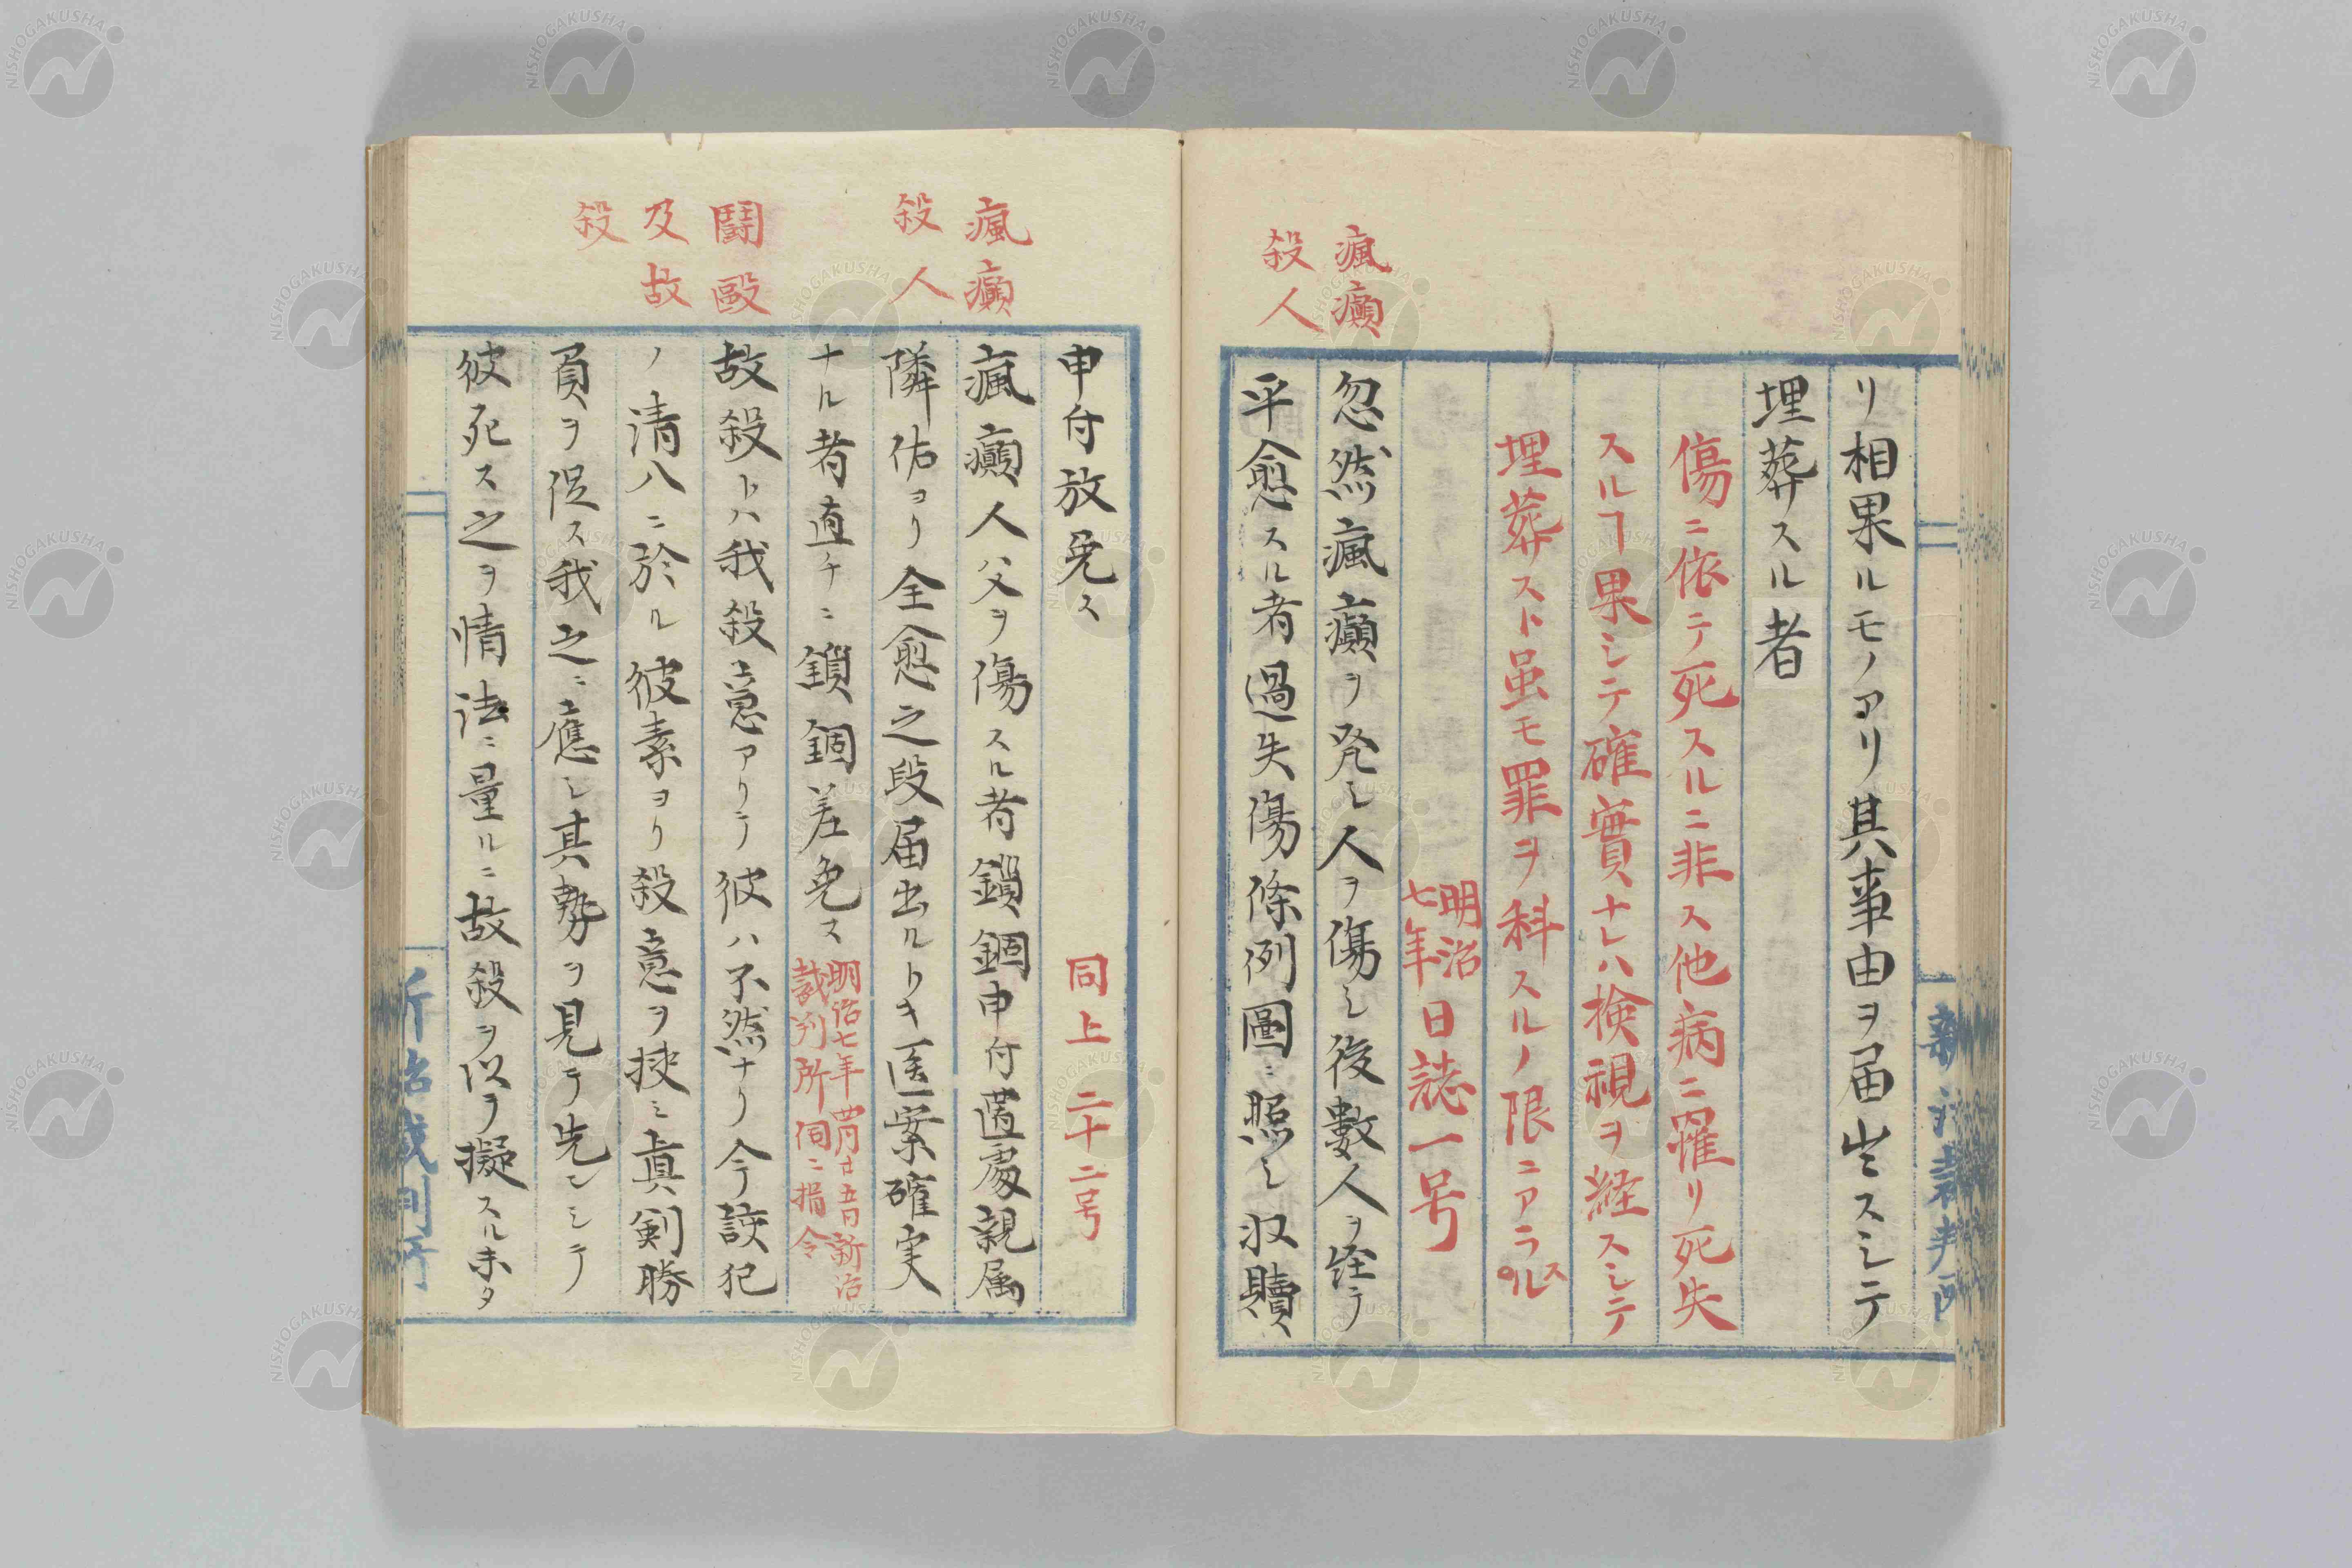 リ相果ルモノアリ其事由ヲ届出スシテ
埋葬スル者
傷ニ依テ死スルニ非ス他病ニ罹リ死失
スルヿ果シテ確實ナレハ検視ヲ経スシテ
埋葬スト虽モ罪ヲ科スルノ限ニアラス
明治
七年
日誌一号
瘋癲
殺人
忽然瘋癲ヲ発シ人ヲ傷シ後數人ヲ経テ
平愈スル者過失傷條例圖ニ照シ収贖
申付放免ス
同上 二十二号
瘋癲
殺人
瘋癲人父ヲ傷スル者鎖錮申付置處親属
隣佑ヨリ全愈之段届出ルトキ医案確実
ナル者直チニ鎖錮差免ス
明治七年四月廿五日新治
裁判所伺ニ指令
闘毆
及故
殺
故殺トハ我殺意アリテ彼ハ不然ナリ今該犯
ノ清八ニ於ル彼素ヨリ殺意ヲ挟ミ真剣勝
負ヲ促ス我之ニ應シ其勢ヲ見テ先ンシテ
彼死ス之ヲ情法ニ量ルニ故殺ヲ以テ擬スル未タ
新治裁判所
新治裁判所
NISHOGAKUSHA